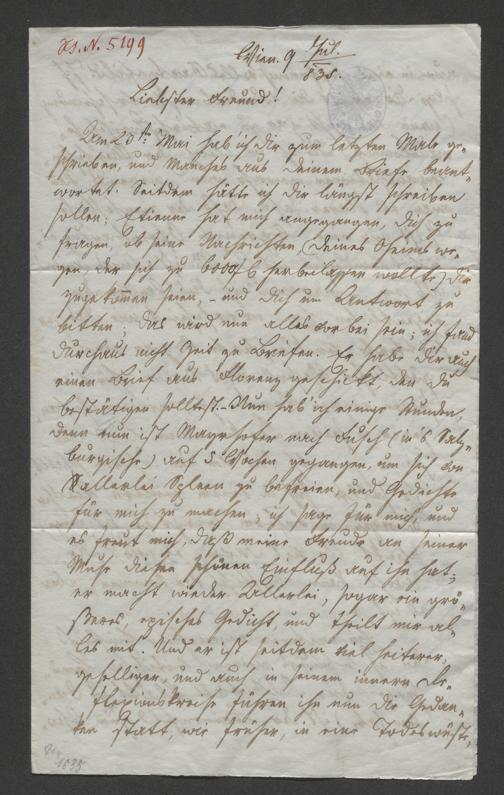 H.I.N. 5199
Wien. 9 Jul.
835.
Liebster Freund!
Am 20t. Mai hab ich Dir zum letzten Male ge-
schrieben, und Manches aus Deinem Briefe beant-
wortet. Seitdem hätte ich Dir längst schreiben
sollen; Etienne hat mich angegangen, Dich zu
fragen, ob seine Nachrichten (Deines Oheims we-
gen, der sich zu 6000 herbeilassen wollte) Dir
zugekommen seien, – und Dich um Antwort zu
bitten; das wird nun alles vorbei sein; ich fand
durchaus nicht Zeit zu Briefen. Er habe Dir auch
einen Brief aus Florenz geschickt, den Du
bestätigen solltest. – Nun hab ich einige Stunden,
denn nun ist Mayrhofer nach Fusch (in's Salz-
burgische) auf 5 Wochen gegangen, um sich von
allerlei Spleen zu befreien, und Gedichte
für mich zu machen; ich sage für mich, und
es freut mich, daß meine Freude an seiner
Muse diesen schönen Einfluß auf ihn hat;
er macht wieder Allerlei, sogar ein grö-
ßeres, episches Gedicht und theilt mir al-
les mit. Und er ist seitdem viel heiterer,
geselliger, und auch in seinem innern Re-
flexionskreise führen ihn nun die Gedan-
ken statt, wie früher, in eine Todeswüste,
1835